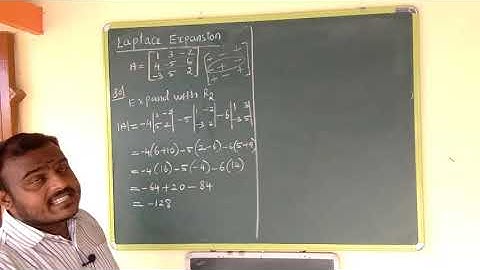 Laplace Expansion
A = [1 3 -2; 4 -5 6; -3 5 2] [+ - +; - + -; + - +]
Sol
Expand with R2
|A| = -4 |3 -2; 5 2| -5 |1 -2; -3 2| -6 |1 3; -3 5|
= -4(6+10) -5(2-6) -6(5+9)
= -4(16) -5(-4) -6(14)
= -64+20-84
= -128